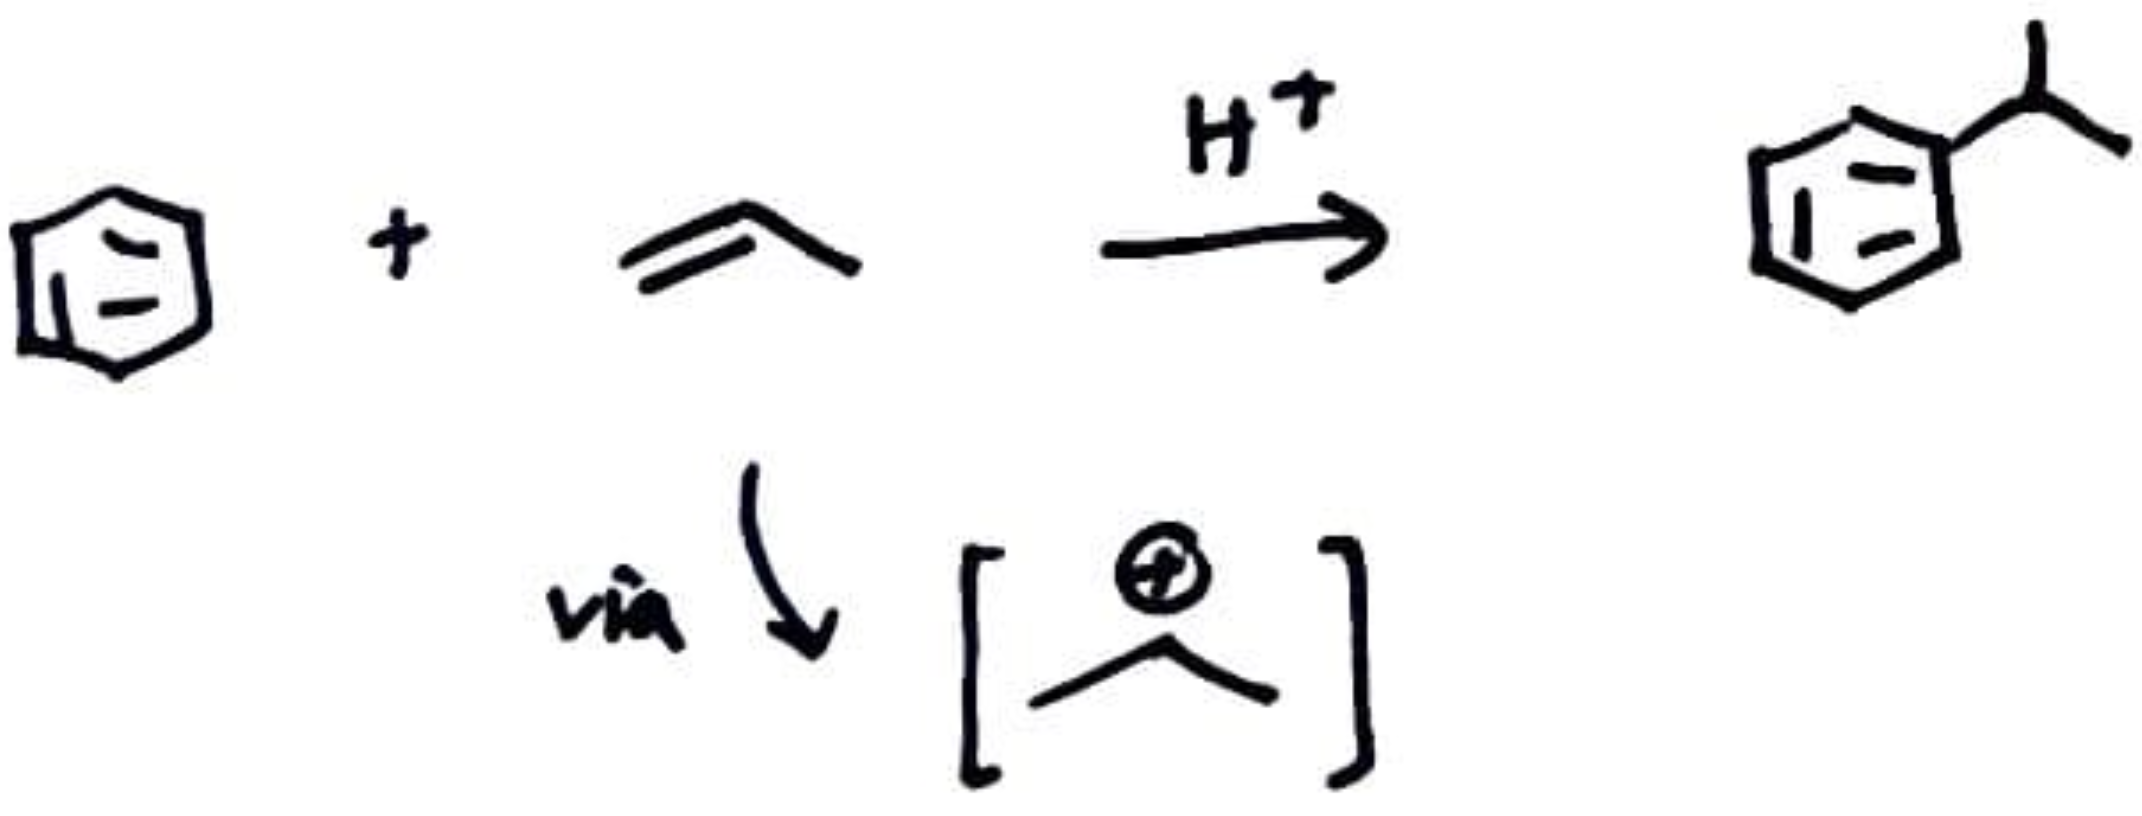 +
H⁺
via
⊕